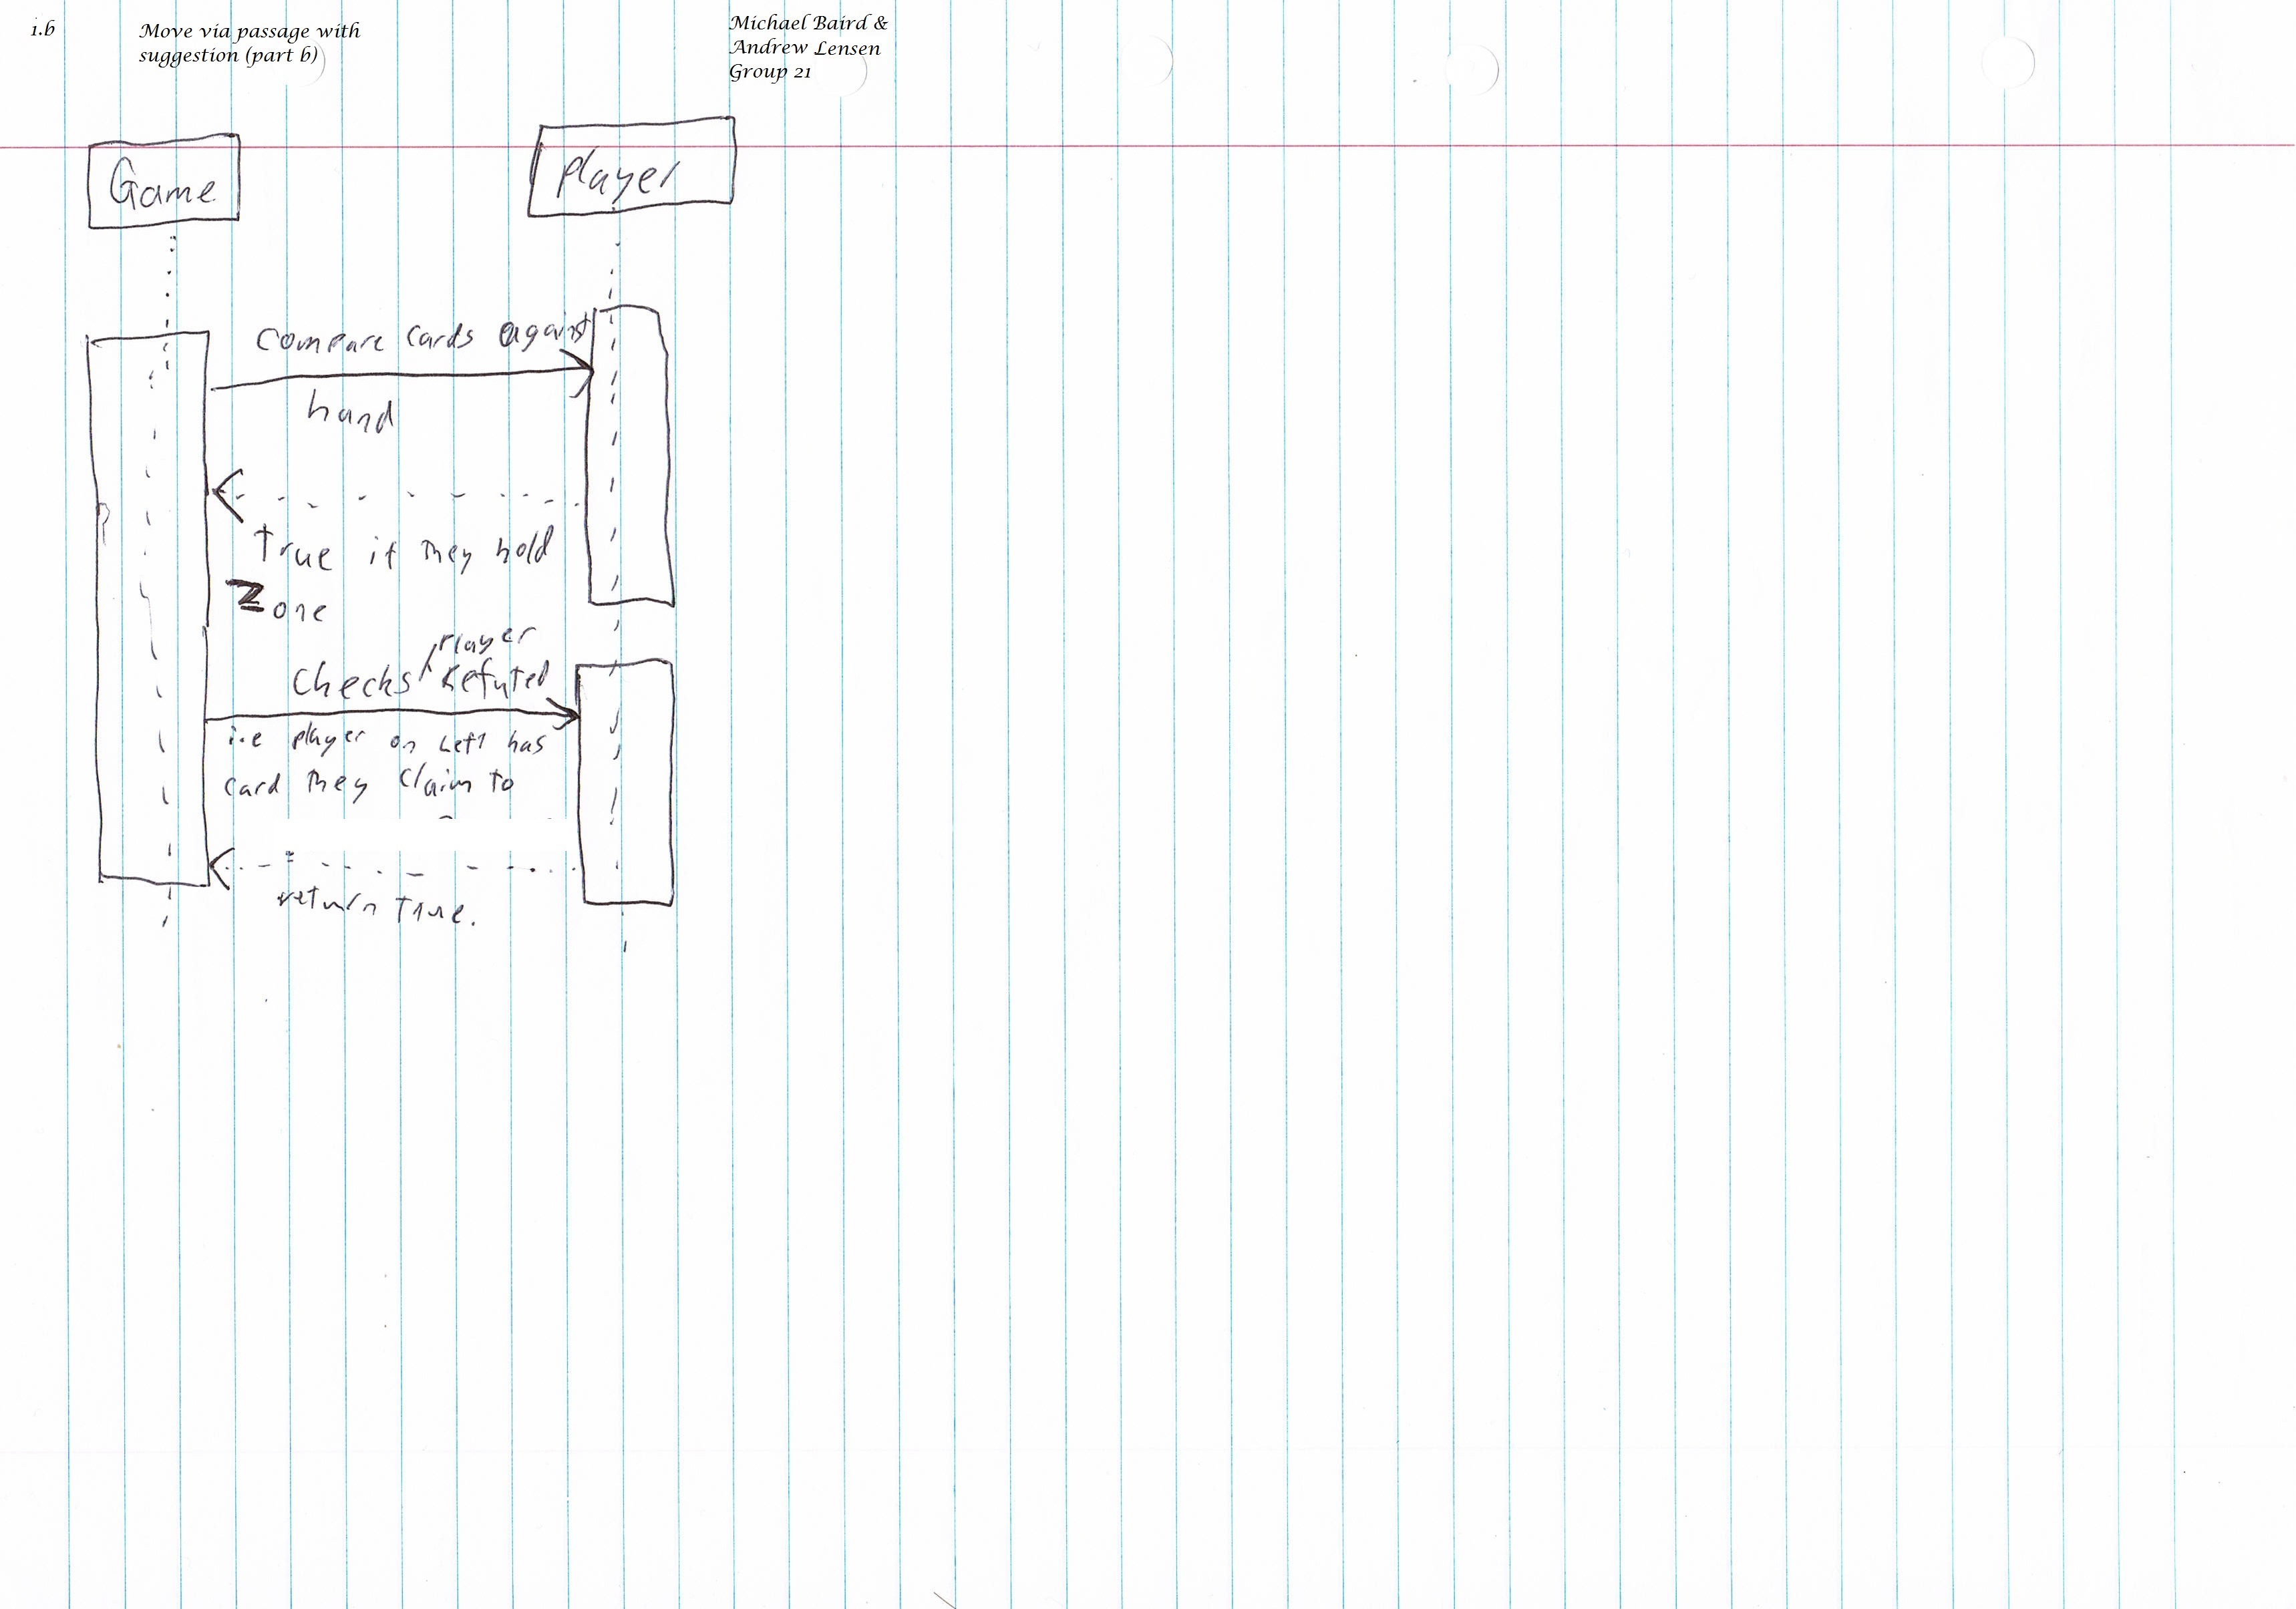 1.b
Move via passage with
suggestion (part b)
Michael Baird &
Andrew Lensen
Group 21
Game
Player
Compare cards against
hand
True if they hold
≥ one
Player
Checks Refuted
i.e player on Left has
card they claim to
return true.